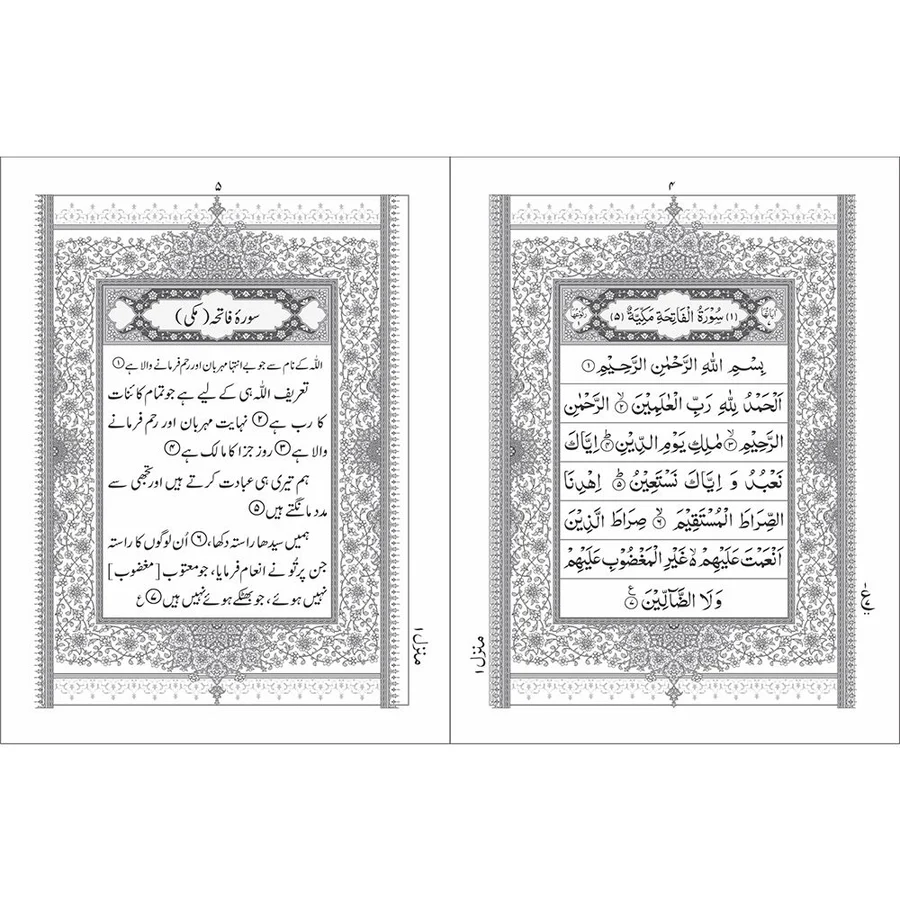 ۴
(۱) سُوْرَةُ الْفَاتِحَةِ مَكِّيَّةٌ (۵)
بِسْمِ اللّٰهِ الرَّحْمٰنِ الرَّحِيْمِ ۝۱
اَلْحَمْدُ لِلّٰهِ رَبِّ الْعٰلَمِيْنَ ۝۲ۙ الرَّحْمٰنِ
الرَّحِيْمِ ۝۳ۙ مٰلِكِ يَوْمِ الدِّيْنِ ۝۴ؕ اِيَّاكَ
نَعْبُدُ وَ اِيَّاكَ نَسْتَعِيْنُ ۝۵ؕ اِهْدِنَا
الصِّرَاطَ الْمُسْتَقِيْمَ ۝۶ۙ صِرَاطَ الَّذِيْنَ
اَنْعَمْتَ عَلَيْهِمْ ۙ۬ غَيْرِ الْمَغْضُوْبِ عَلَيْهِمْ
وَلَا الضَّآلِّيْنَ ۝۷
منزل ۱
۵
سورۂ فاتحہ (مکی)
اللہ کے نام سے جو بے انتہا مہربان اور رحم فرمانے والا ہے ۝۱
تعریف اللہ ہی کے لیے ہے جو تمام کائنات
کا رب ہے ۝۲ نہایت مہربان اور رحم فرمانے
والا ہے ۝۳ روز جزا کا مالک ہے ۝۴
ہم تیری ہی عبادت کرتے ہیں اور تجھی سے
مدد مانگتے ہیں ۝۵
ہمیں سیدھا راستہ دکھا، ۝۶ اُن لوگوں کا راستہ
جن پر تُو نے انعام فرمایا، جو معتوب [مغضوب]
نہیں ہوئے، جو بھٹکے ہوئے نہیں ہیں ۝۷ ع
منزل ۱